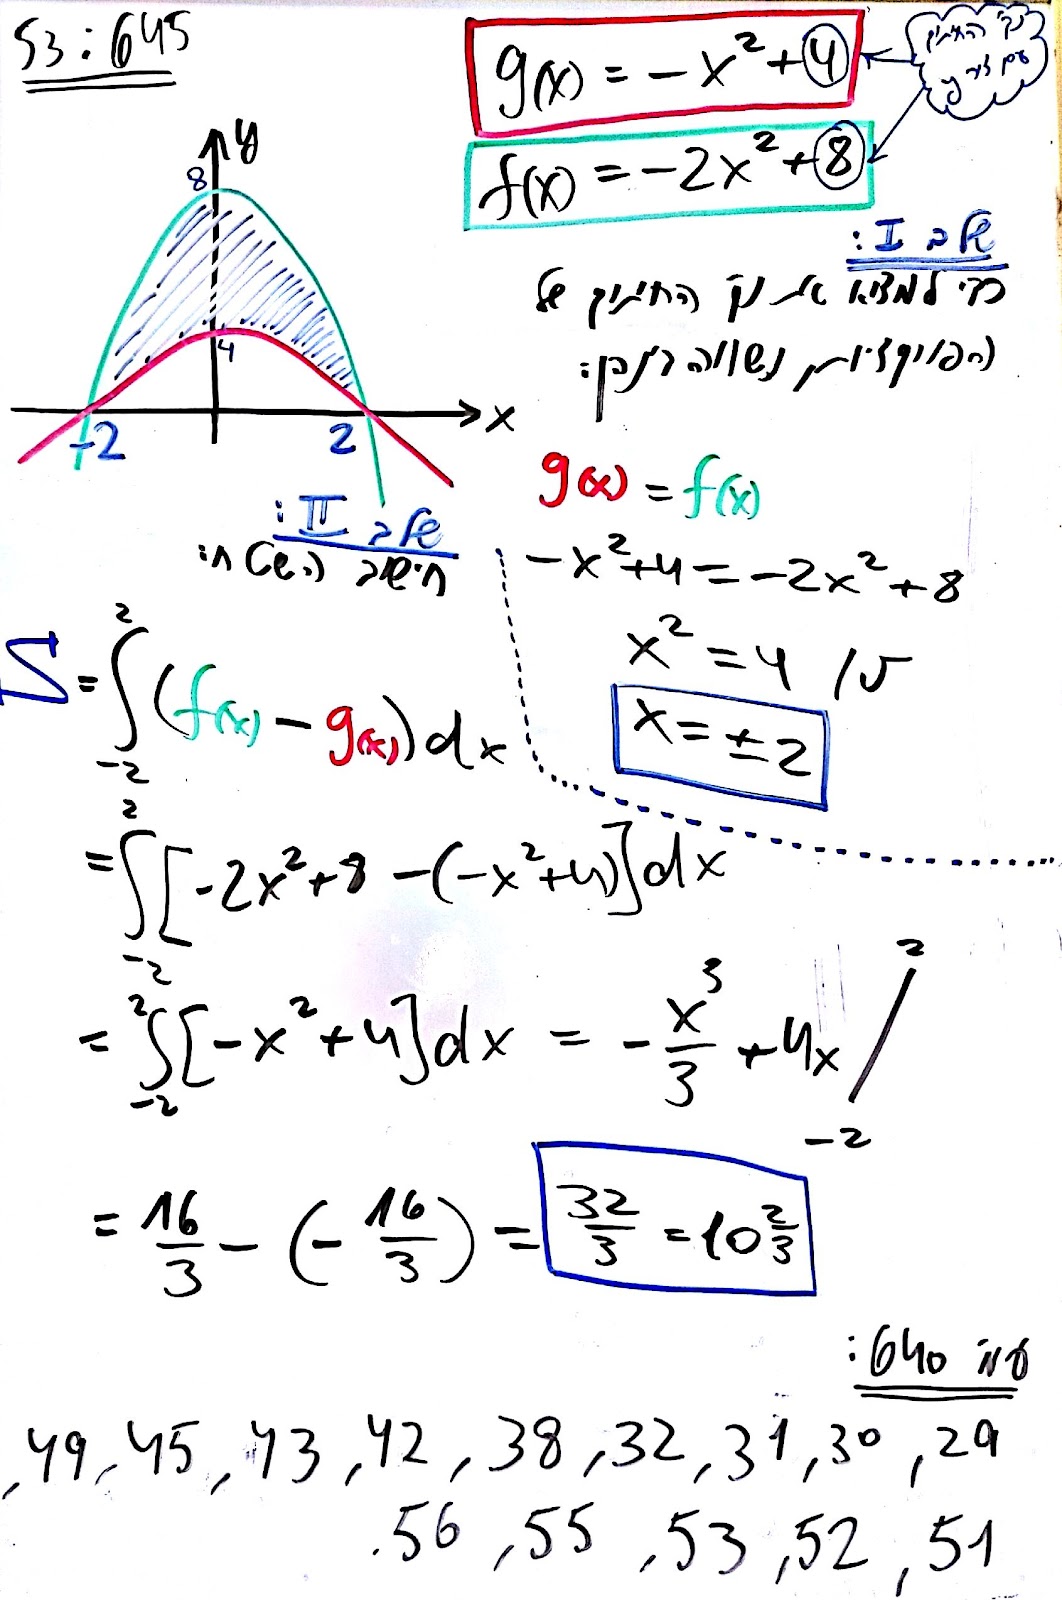 53 : 645
g(x) = -x² + 4
f(x) = -2x² + 8
נק' החיתוך
עם ציר y
שלב I:
כדי למצוא את נק' החיתוך של
הפונקציות, נשווה ביניהן:
y
8
4
-2
2
x
g(x) = f(x)
-x²+4 = -2x²+8
x² = 4 /√
x = ±2
שלב II:
חישוב השטח:
S = ∫₋₂² (f(x) - g(x)) dx
= ∫₋₂² [-2x²+8 -(-x²+4)] dx
= ∫₋₂² [-x²+4] dx = -x³/3 + 4x /₋₂²
= 16/3 - (- 16/3) = 32/3 = 10 2/3
עמ' 640:
29, 30, 31, 32, 38, 42, 43, 45, 49,
51, 52, 53, 55, 56.